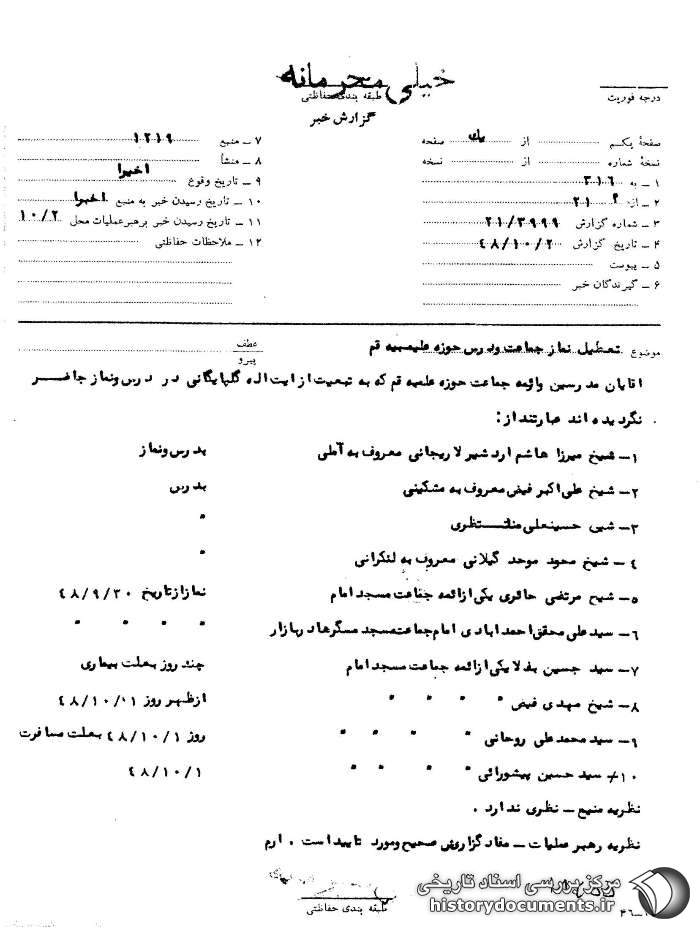 خیلی محرمانه
طبقه بندی حفاظتی
گزارش خبر
درجه فوریت
صفحهٔ یکم از یک صفحه
نسخهٔ شماره از نسخه
۱ ـ به ۳۱۶
۲ ـ از ۲۱
۳ ـ شماره گزارش ۲۱/۳۹۹۹
۴ ـ تاریخ گزارش ۴۸/۱۰/۲
۵ ـ پیوست
۶ ـ گیرندگان خبر
۷ ـ منبع ۱۲۱۹
۸ ـ منشأ
۹ ـ تاریخ وقوع اخیرا
۱۰ ـ تاریخ رسیدن خبر به منبع اخیرا
۱۱ ـ تاریخ رسیدن خبر برهبر عملیات محل ۱۰/۲
۱۲ ـ ملاحظات حفاظتی
موضوع تعطیل نماز جماعت ودرس حوزه علمیه قم
عطف
پیرو
اقایان مدرسین وائمه جماعت حوزه علمیه قم که به تبعیت از ایت اله گلپایگانی در درس ونماز حاضر
نگردیده اند عبارتند از:
۱ـ شیخ میرزا هاشم اردشیر لاریجانی معروف به آملی بدرس ونماز
۲ـ شیخ علی اکبر فیض معروف به مشکینی بدرس
۳ـ شیی حسینعلی منتظری "
۴ـ شیخ محمود موحد گیلانی معروف به لنکرانی "
۵ـ شیح مرتضی حائری یکی از ائمه جماعت مسجد امام نماز از تاریخ ۴۸/۹/۳۰
۶ـ سید علی محقق احمد ابادی امام جماعت مسجد مسگرها در بازار " " " "
۷ـ سید حسین بدلا یکی از ائمه جماعت مسجد امام چند روز بعلت بیماری
۸ـ شیخ مهدی فیض " " " " از ظهر روز ۴۸/۱۰/۱
۹ـ سید محمد علی روحانی " " " " روز ۴۸/۱۰/۱ بعلت مسافرت
۱۰ـ سید حسین پیشورائی " " " " ۴۸/۱۰/۱
نظریه منبع ـ نظری ندارد .
نظریه رهبر عملیات ـ مفاد گزارش صحیح ومورد تایید است . ارم
طبقه بندی حفاظتی
مرکز بررسی اسناد تاریخی
historydocuments.ir